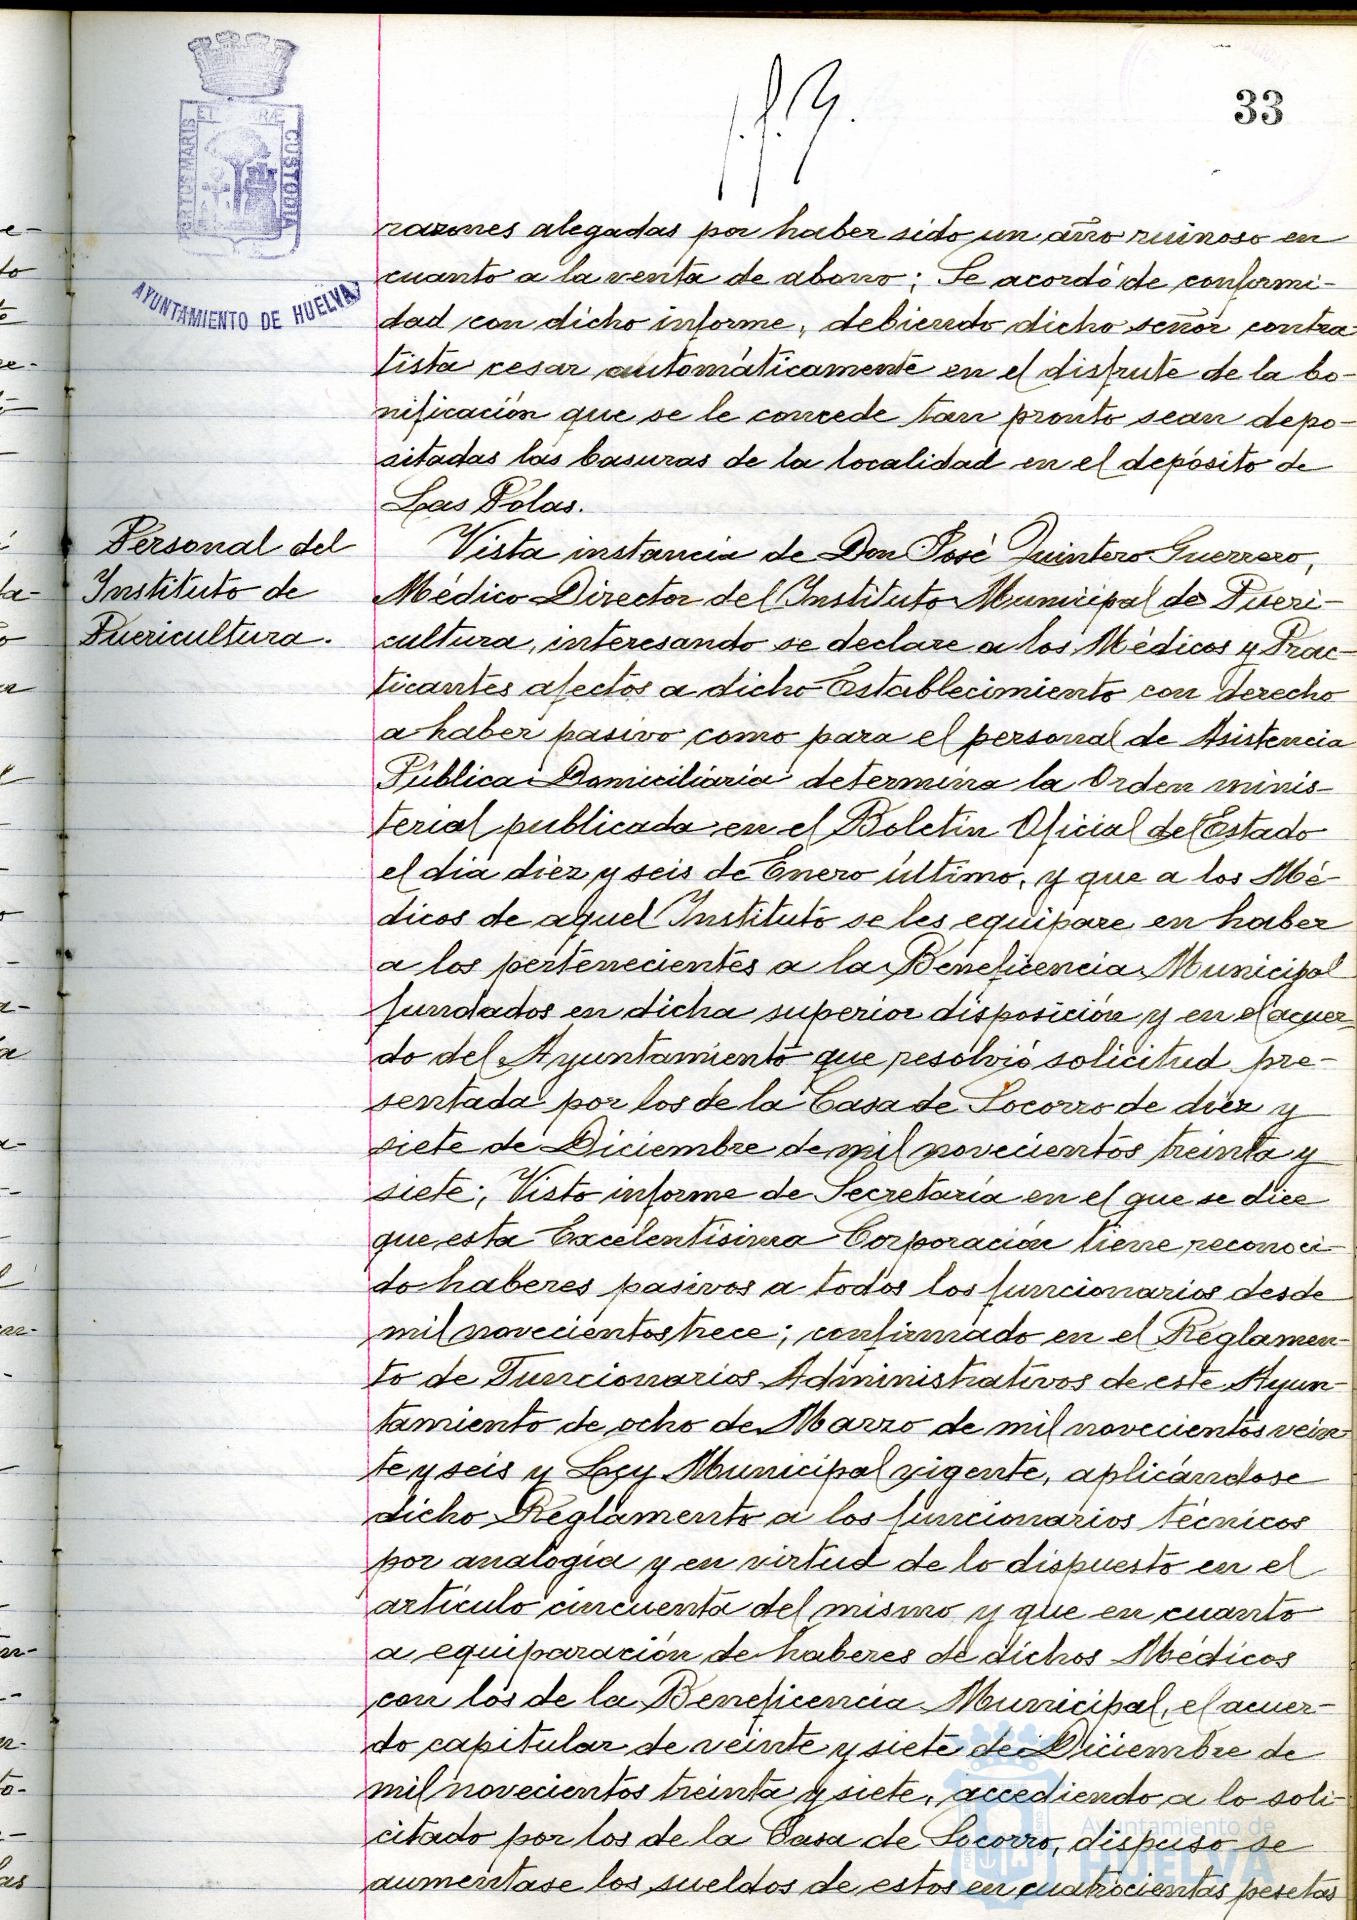 33
PORTUS MARIS ET CUSTODIA
AYUNTAMIENTO DE HUELVA
razones alegadas por haber sido un año ruinoso en
cuanto a la venta de abono; Se acordó de conformi-
dad con dicho informe, debiendo dicho señor contra
tista cesar automáticamente en el disfrute de la bo-
nificación que se le concede tan pronto sean depo-
sitadas las basuras de la localidad en el depósito de
Las Polas.
Personal del
Instituto de
Puericultura.
Vista instancia de Don José Quintero Guerrero,
Médico Director del Instituto Municipal de Pueri-
cultura, interesando se declare a los Médicos y Prac-
ticantes afectos a dicho Establecimiento con derecho
a haber pasivo como para el personal de Asistencia
Pública Domiciliaria determina la Orden minis-
terial publicada en el Boletín Oficial del Estado
el dia diez y seis de Enero último, y que a los Mé-
dicos de aquel Instituto se les equipare en haber
a los pertenecientes a la Beneficencia Municipal
fundados en dicha superior disposición y en el acuer-
do del Ayuntamiento que resolvió solicitud pre-
sentada por los de la Casa de Socorro de diez y
siete de Diciembre de mil novecientos treinta y
siete; Visto informe de Secretaría en el que se dice
que esta Excelentísima Corporación tiene reconoci-
do haberes pasivos a todos los funcionarios desde
mil novecientos trece; confirmado en el Reglamen-
to de Funcionarios Administrativos de este Ayun-
tamiento de ocho de Marzo de mil novecientos vein-
te y seis y Ley Municipal vigente, aplicándose
dicho Reglamento a los funcionarios técnicos
por analogía y en virtud de lo dispuesto en el
artículo cincuenta del mismo y que en cuanto
a equiparación de haberes de dichos Médicos
con los de la Beneficencia Municipal, el acuer-
do capitular de veinte y siete de Diciembre de
mil novecientos treinta y siete, accediendo a lo soli-
citado por los de la Casa de Socorro, dispuso se
aumentase los sueldos de estos en cuatrocientas pesetas
Ayuntamiento de
HUELVA